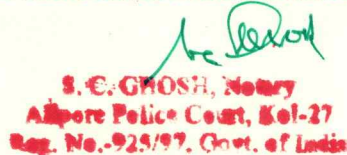 S. C. GHOSH, Notary
Alipore Police Court, Kol-27
Reg. No.-925/97, Govt. of India